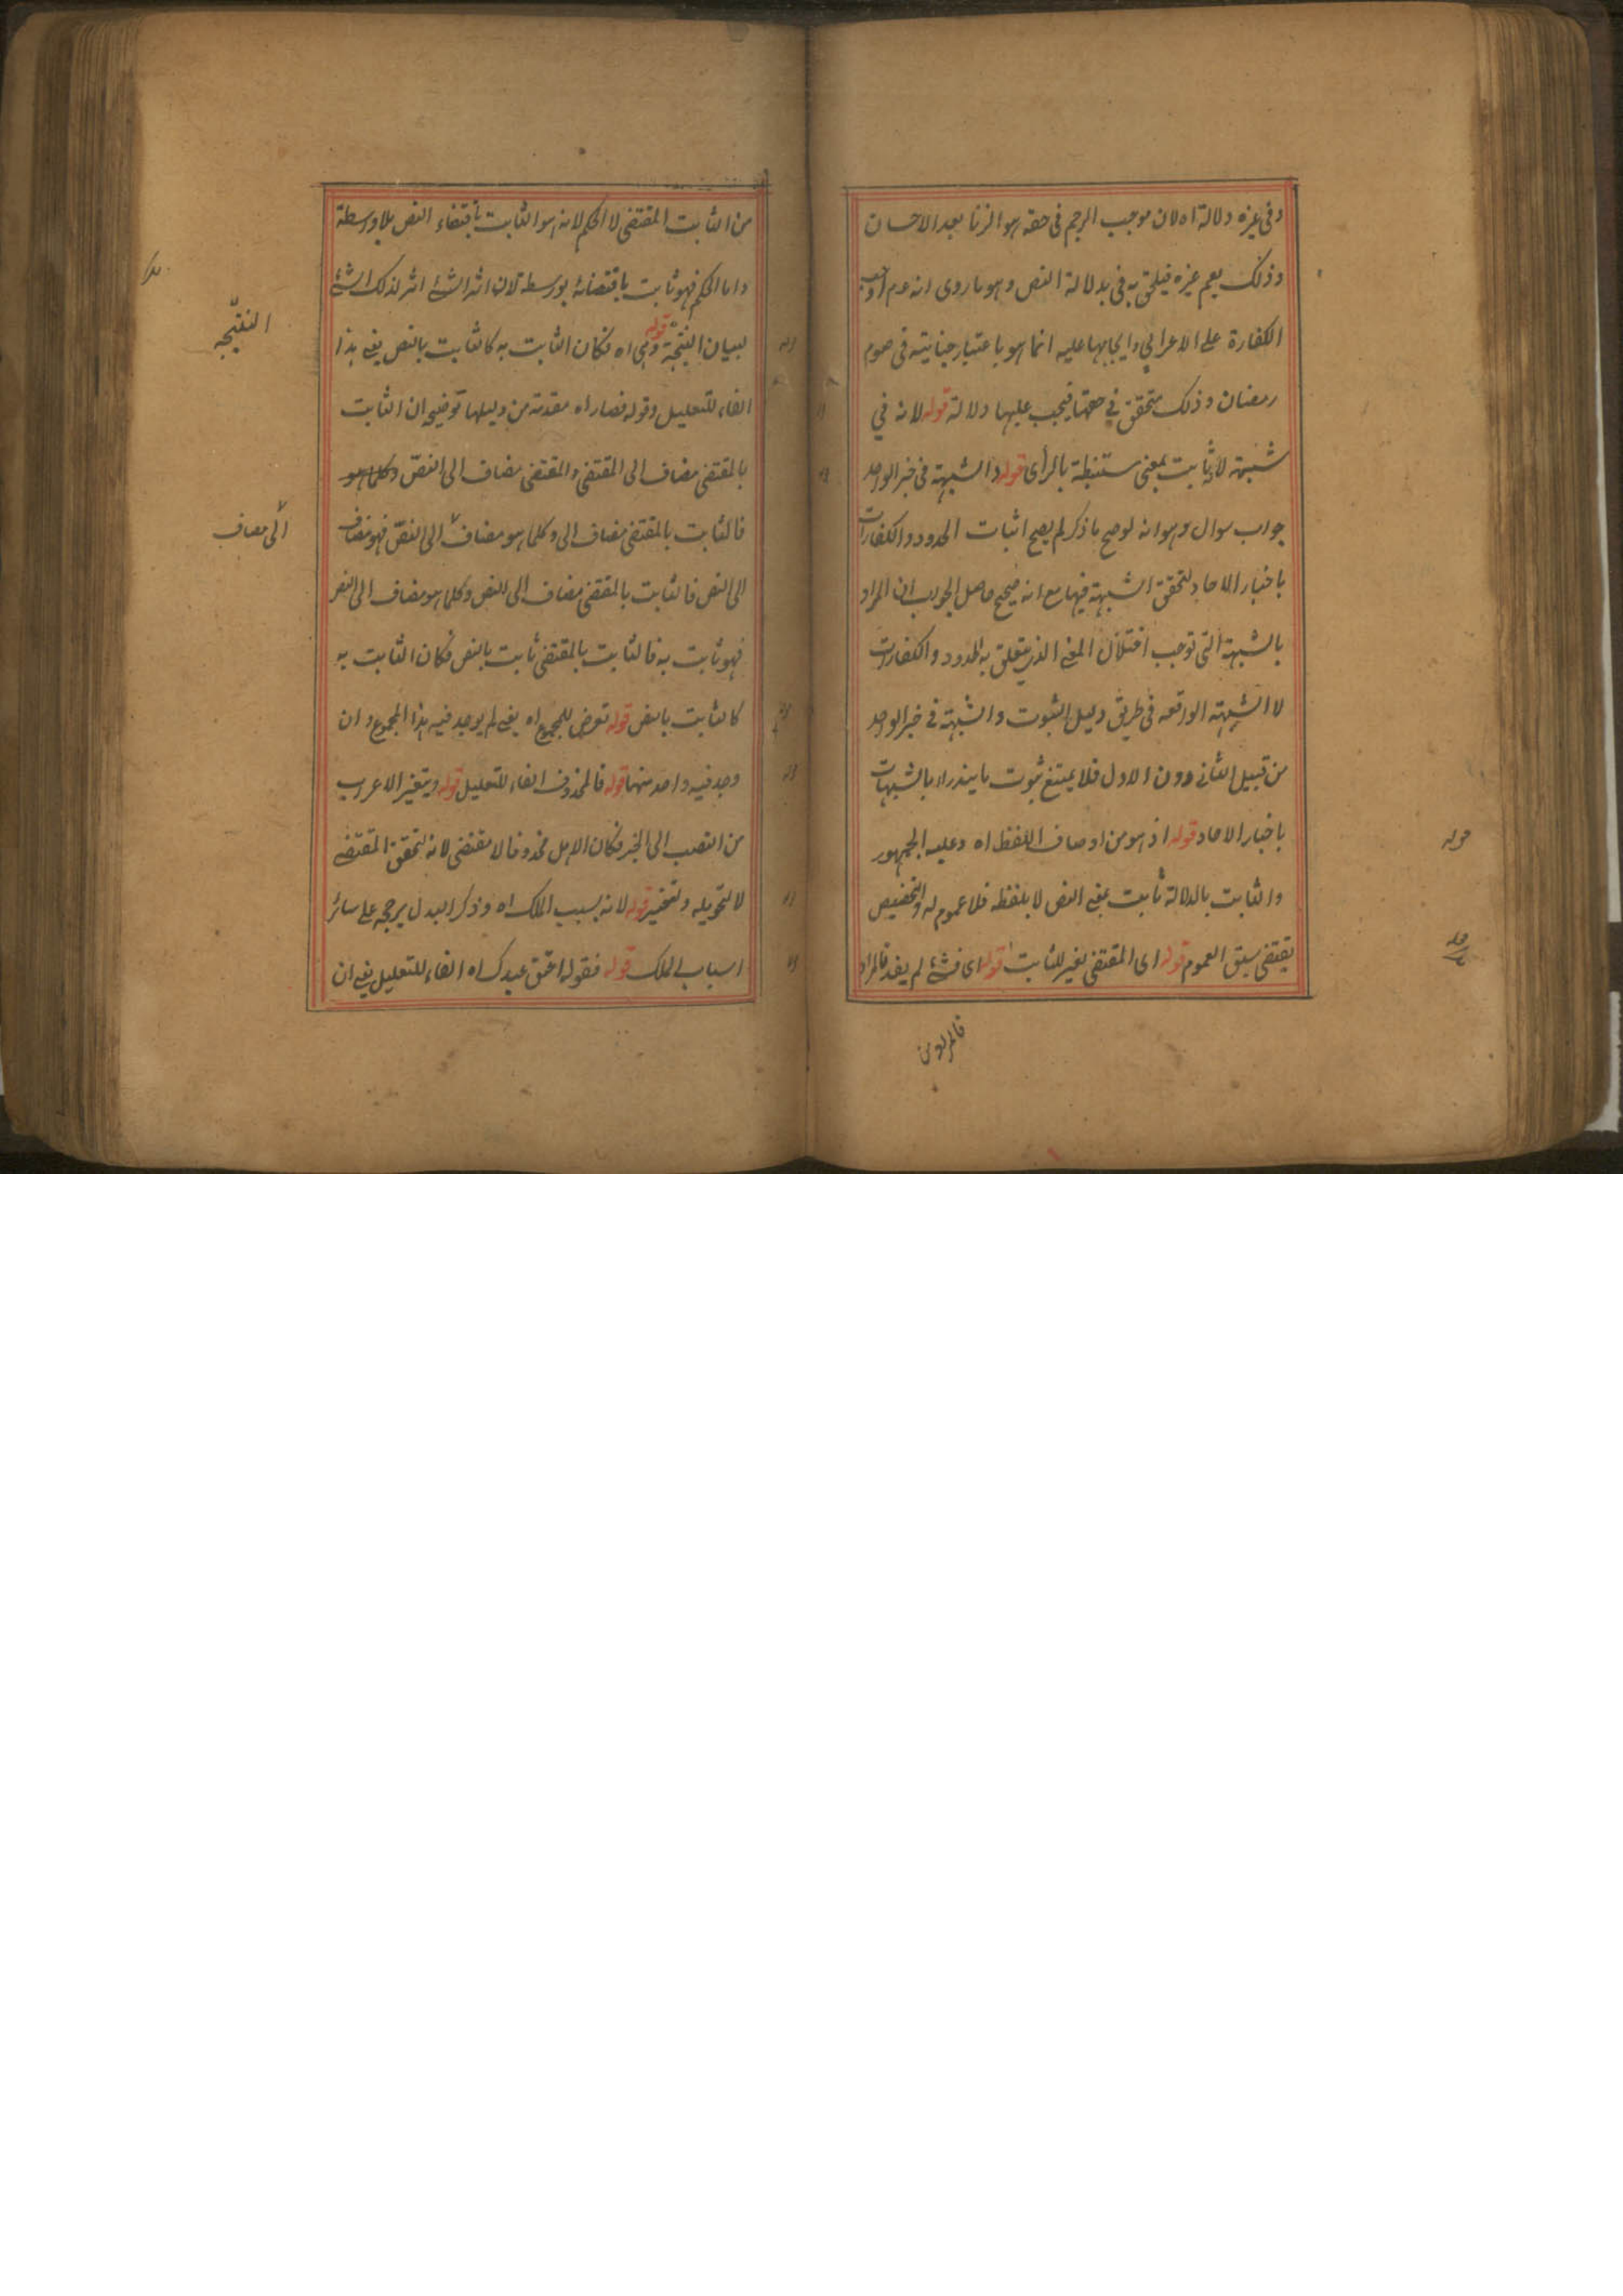 وفى غيره دلالة اه لان موجب الرجم فى حقه هو الزنا بعد الاحسان
وذلك يعم غيره فيلحق به فى بدلالة النص وهو ما روى انه عم اوجب
الكفارة على الاعرابي وايجابها عليه انما هو باعتبار جنايته فى صوم
رمضان وذلك متحقق في حقها فيجب عليها دلالة قوله لانه في
شبهة لأنه ثابت بمعنى مستنبطة بالرأى قوله والشبهة فى خبر الواحد
جواب سوال وهو انه لو صح ما ذكر لم يصح اثبات الحدود والكفارات
باخبار الاحاد لتحقق الشبهة فيها مع انه صحيح حاصل الجواب ان المراد
بالشبهة التى توجب اختلال المعنى الذى يتعلق به الحدود والكفارات
لا الشبهة الواقعه فى طريق دليل الثبوت والشبهة في خبر الواحد
من قبيل الثانى دون الاول فلا يمتنع ثبوت ما يندرء بالشبهات
باخبار الاحاد قوله اذ هو من اوصاف اللفظ اه وعليه الجمهور
والثابت بالدلالة ثابت بمعنى النص لا بلفظه فلا عموم له والتخصيص
يقتضى سبق العموم قوله اى المقتضى تغير للثابت قوله اى فشئ لم يفد فالمراد
فالمراد من
من الثابت المقتضى لا الحكم لانه هو الثابت باقتضاء النص بلا واسطة
واما الحكم فهو ثابت باقتضائه بواسطة لان اثر الشئ اثر لذلك الشئ
لبيان النتيجة قوله وهى اه فكان الثابت به كالثابت بالنص يعنى هذا
الفاء للتعليل وقوله فصار اه مقدمة من دليلها توضيحه ان الثابت
بالمقتضى مضاف الى المقتضى والمقتضى مضاف الى النص وكلما هو
فالثابت بالمقتضى مضاف الى وكلما هو مضاف الى النص فهو مضاف
الى النص فالثابت بالمقتضى مضاف الى النص وكلما هو مضاف الى النص
فهو ثابت به فالثابت بالمقتضى ثابت بالنص فكان الثابت به
كالثابت بالنص قوله تعرض للمجموع اه يعنى لم يوجد فيه هذا المجموع وان
وجد فيه واحد منهما قوله فالمحذوف الفاء للتعليل قوله ويتغير الاعراب
من النصب الى الجر فكان الاهل محذوفا لا مقتضى لانه لتحقق المقتضى
لا لتحويله وتغير قوله لانه بسبب الملك اه وذكر البدل يرجحه على سائر
اسباب الملك قوله فقوله اعتق عبدك اه الفاء للتعليل يعنى ان
النتيجه
الى مضاف
قوله